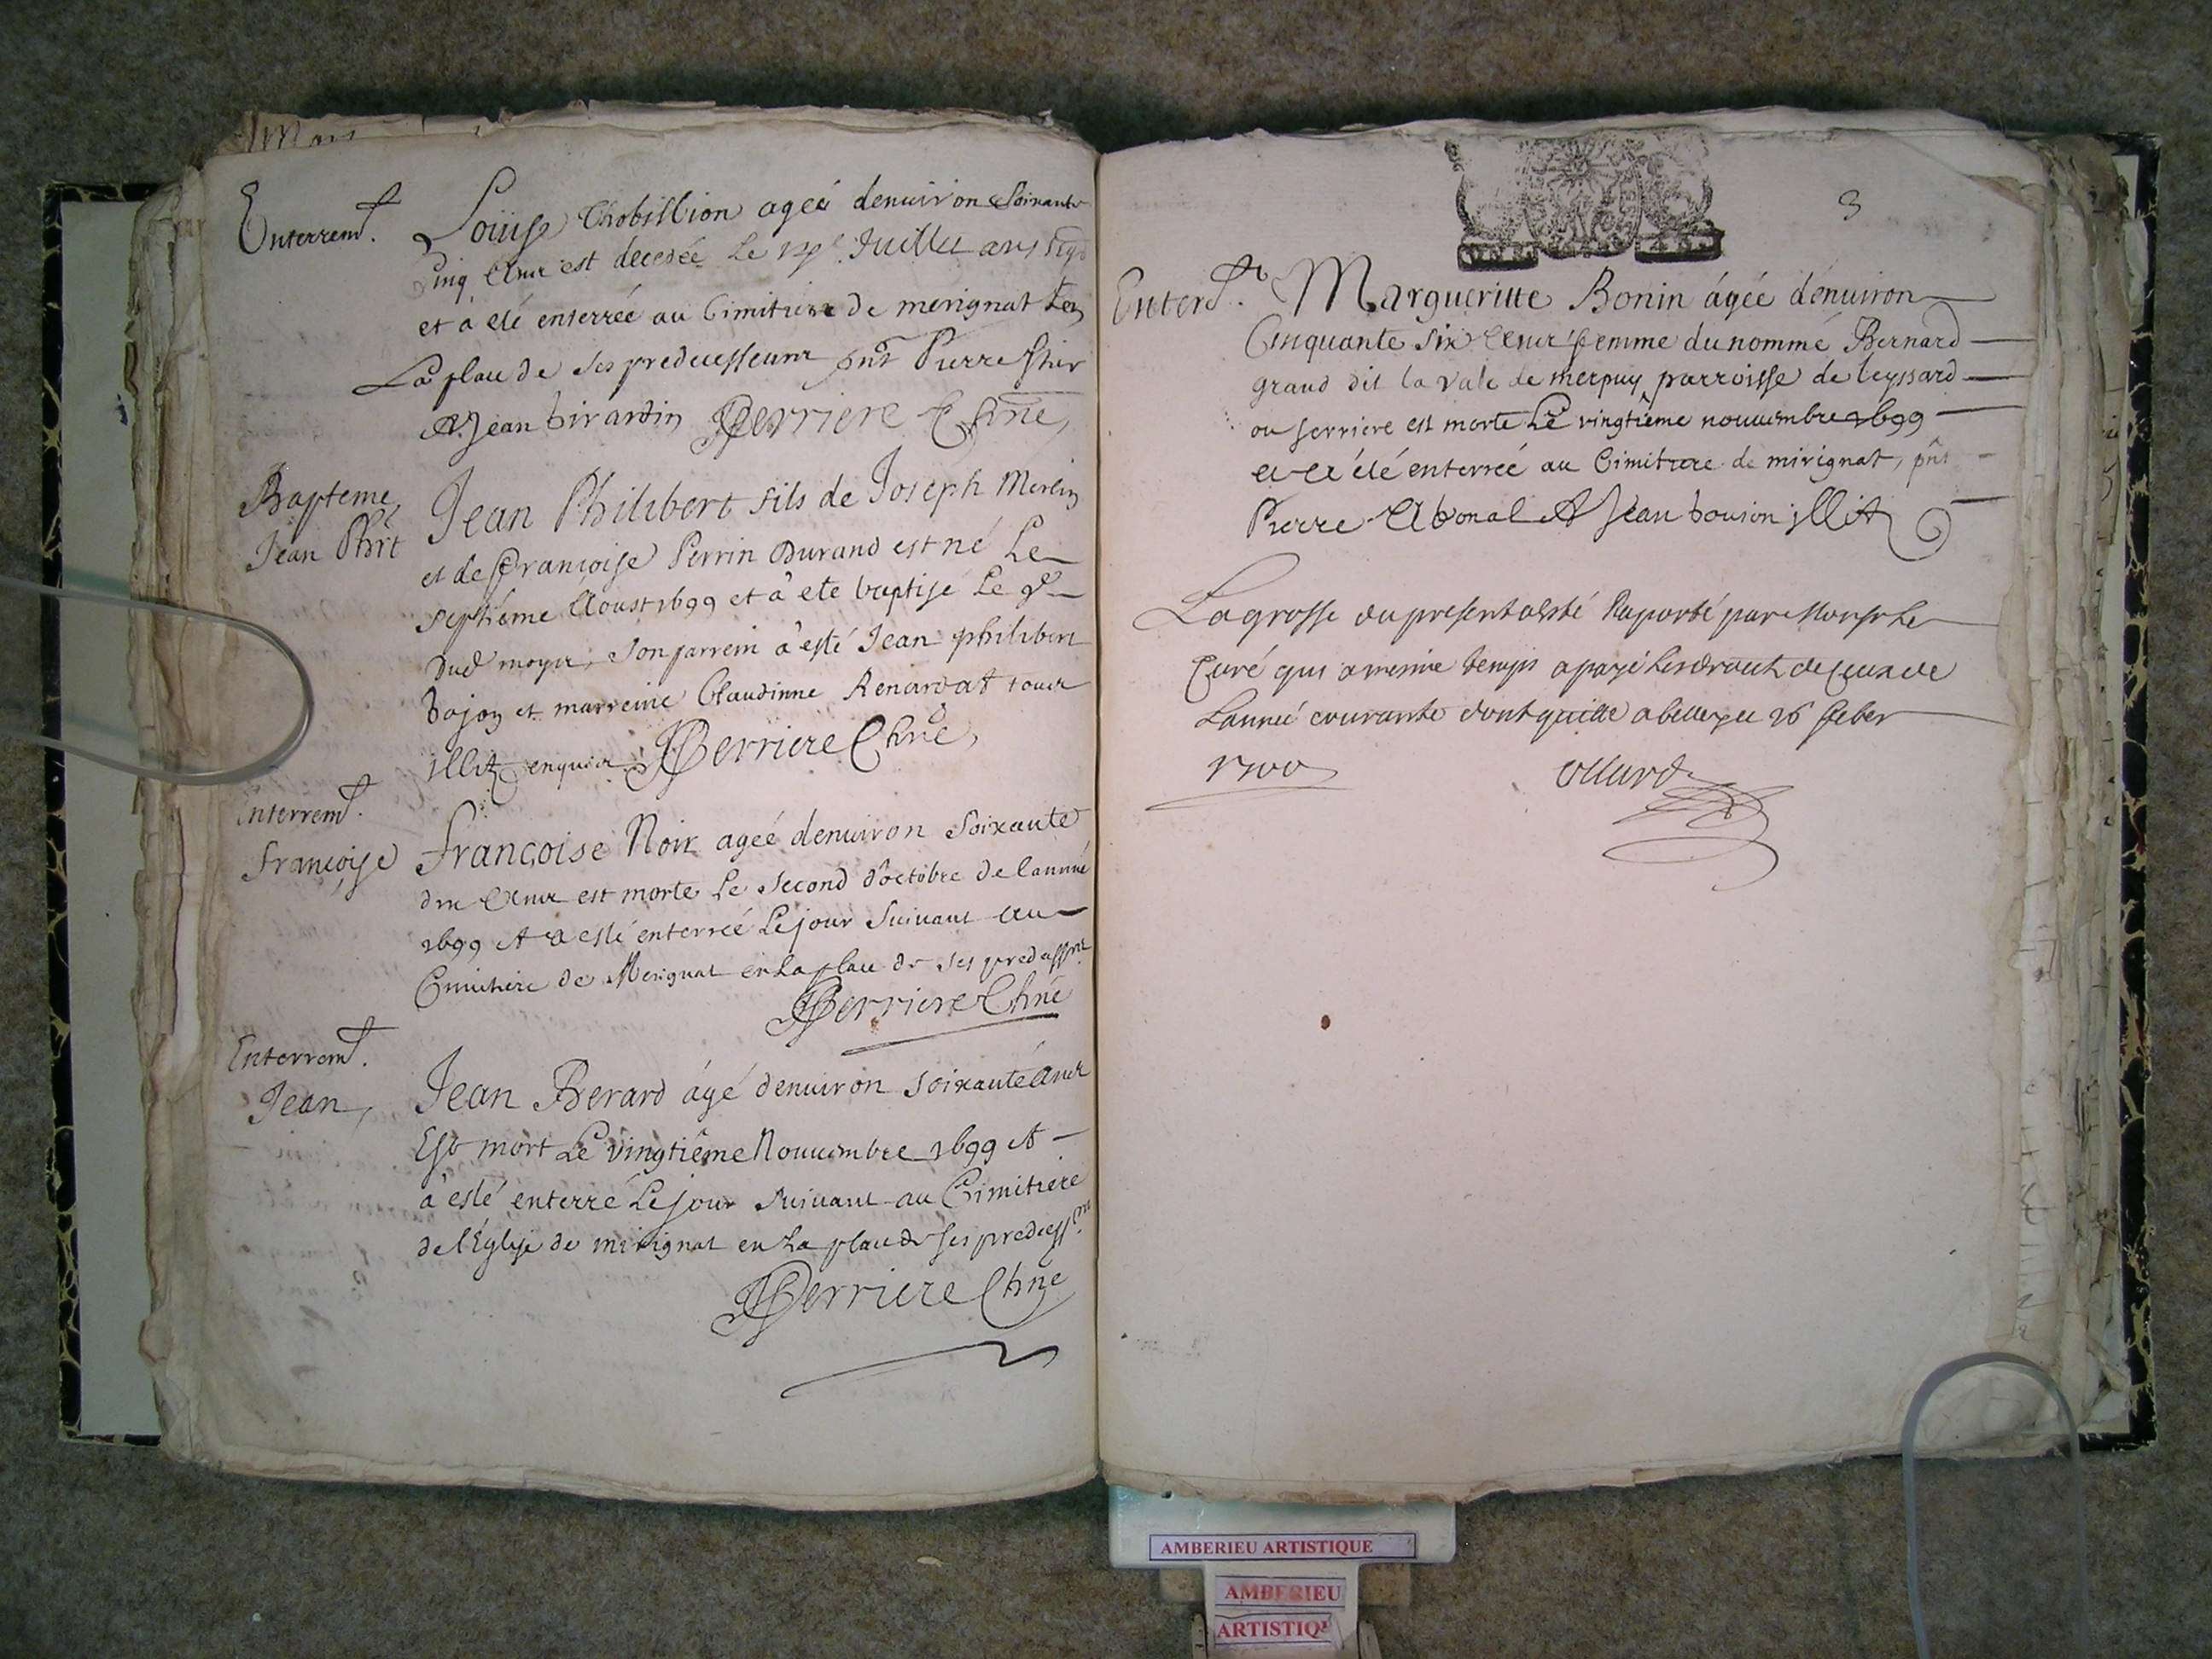 Mars
Enterremt.
Loüise Chobillion ageé denuiron Soixante
Cinq Ans est decedée Le Juillet
et a eté enterreé au Cimitiere de merignat En
La place de ses predecesseurs pnt Pierre
et Jean Girardin Perriere
Bapteme
Jean Phit
Jean Philibert fils de Joseph Merlin
et de Françoise Perrin Durand est né Le
septiéme Aoust 1699 et à eté baptisé Le 9e
Dud moys, Son parrein à esté Jean philibert
bajon et marreine Claudinne Renardat tous
illit enquis Perriere
Enterremt.
françoise
françoise Noir ageé denuiron Soixante
dix Ans est morte Le Second d'octobre de l'anneé
1699 et a esté enterreé Le jour Suiuant au
Cimitiere de Merignat en La place de ses predessrs
Perriere
Enterremt.
Jean,
Jean Berard ágé denuiron Soixante Ans
Est mort Le vingtiéme Nouuembre 1699 et
à esté enterré Le jour Suiuant au Cimitiere
de l'Eglise de mirignat en La place de ses predecessrs
Perriere
3
Enterrt.
Margueritte Bonin ágée dénuiron
Cinquante Six Ans femme du nommé Bernard
grand dit la vale de merpuy parroisse de leyssard
ou serriere est morte Le vingtiéme nouuembre 1699
et a été enterreé au Cimitiere de mirignat, pnt
Pierre Abonal et Jean bouion illit
La grosse du present a esté Raporté par Monsr Le
Curé qui a mesme temps a payé Les droicts de ceux de
L'anneé courante dont quitte a belley ce 26 feber
1700
AMBERIEU ARTISTIQUE
AMBERIEU
ARTISTIQ